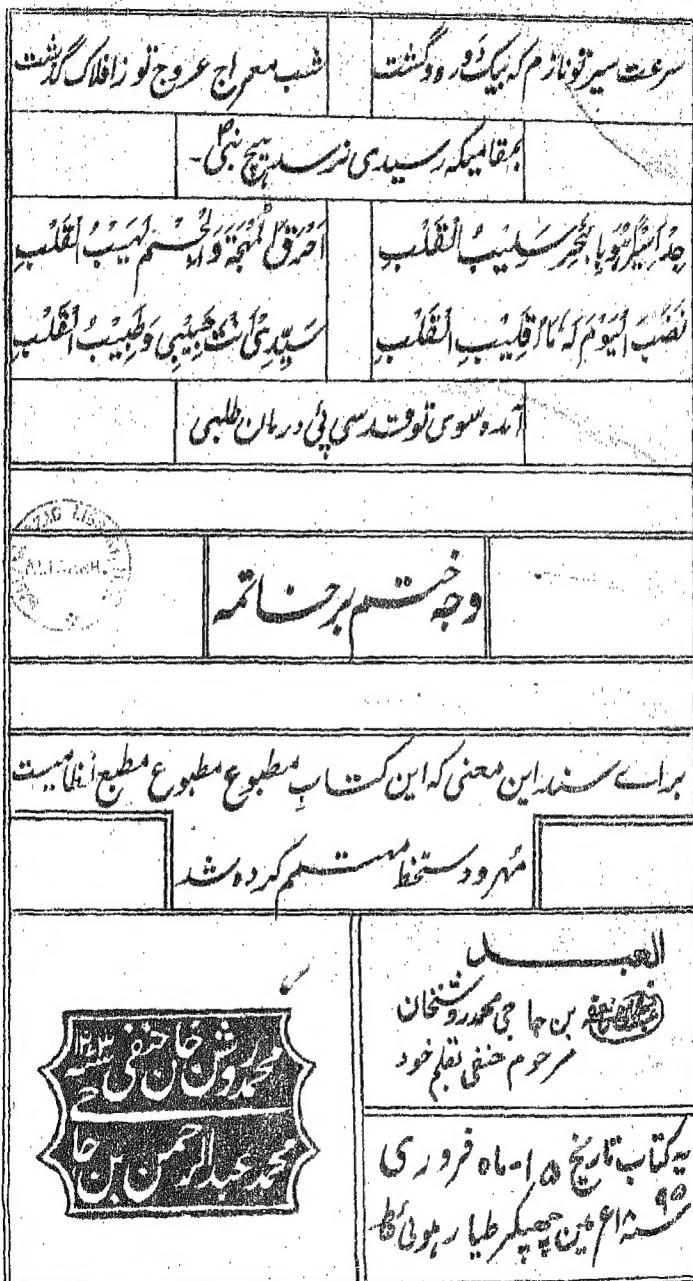 سرعت سیر تو نازم کہ بیک دورہ و گشت
شب معراج عروج تو ز افلاک گذشت
بمقامیکہ رسیدی نرسد ہیچ نبیؐ۔
سَلِیبُ الْقَلَبِ
اَحْرَقَ الْمُهْجَةَ وَالْجِسْم لَهِیْبُ الْقَلَبِ
الْیَوْمَ
سَیِّدِیْ اَنْتَ حَبِیْبِیْ وَطَبِیْبُ الْقَلَبِ
آمدہ سوی تو قدسی پئی درمان طلبی
وجہ ختم بر خاتمہ
براے سند این معنی کہ این کتاب مطبوع مطبوع مطبع نظامیست
مُہر و دستخط مہتمم کردہ شد
العبد
بن حاجی محمد روشنخان
مرحوم حنفی بقلم خود
محمد روشن خان حنفی سنہ
محمد عبد الرحمن بن حاجی
یہ کتاب تاریخ ۱۵- ماہ فروری
سنہ ۱۸۹۵ع مین چھپکر طیار ہوئی فقط